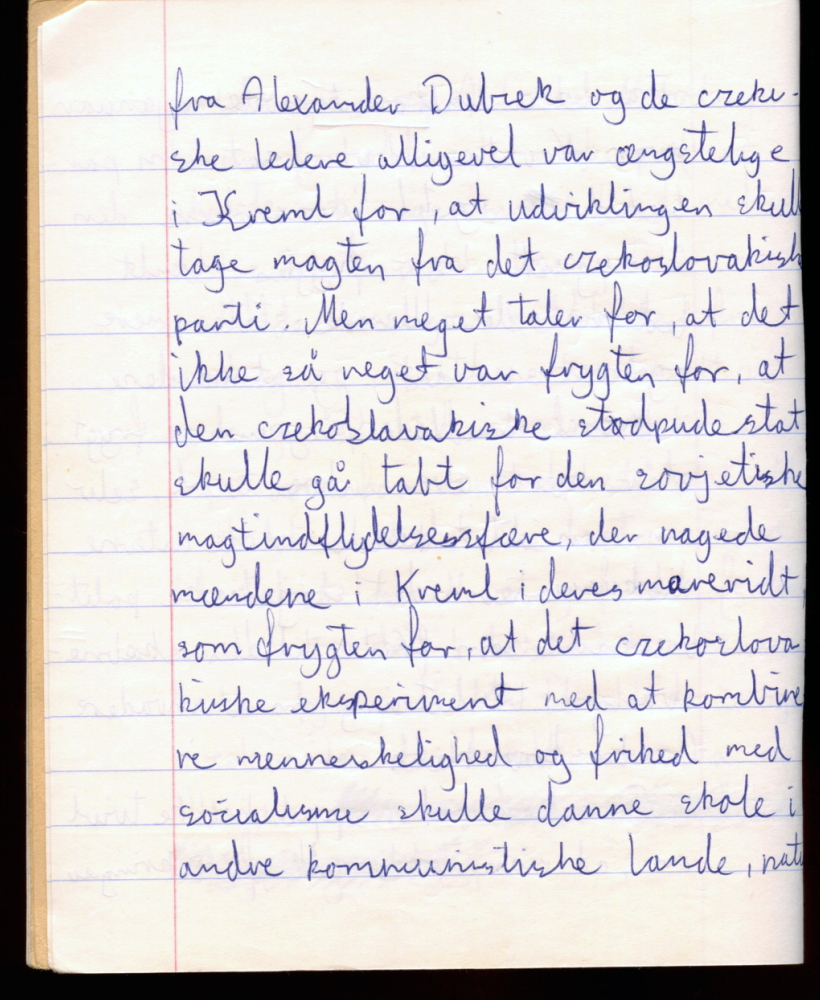 fra Alexander Dubcek og de czeki-
ske ledere alligevel var ængstelige
i Kreml for, at udviklingen skull
tage magten fra det czekoslovakisk
parti. Men meget taler for, at det
ikke så meget var frygten for, at
den czekoslavakiske stødpudestat
skulle gå tabt for den sovjetiske
magtindflydelsessfære, der nagede
mændene i Kreml i deres mareridt,
som frygten for, at det czekoslova
kiske eksperiment med at kombine
re menneskelighed og frihed med
socialisme skulle danne skole i
andre kommunistiske lande, natu